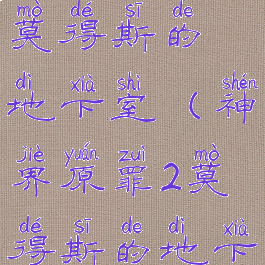 mò dé sī de
莫得斯的
dì xià shì shén
地下室(神
jiè yuán zuì mò
界原罪2莫
dé sī de dì xià
得斯的地下